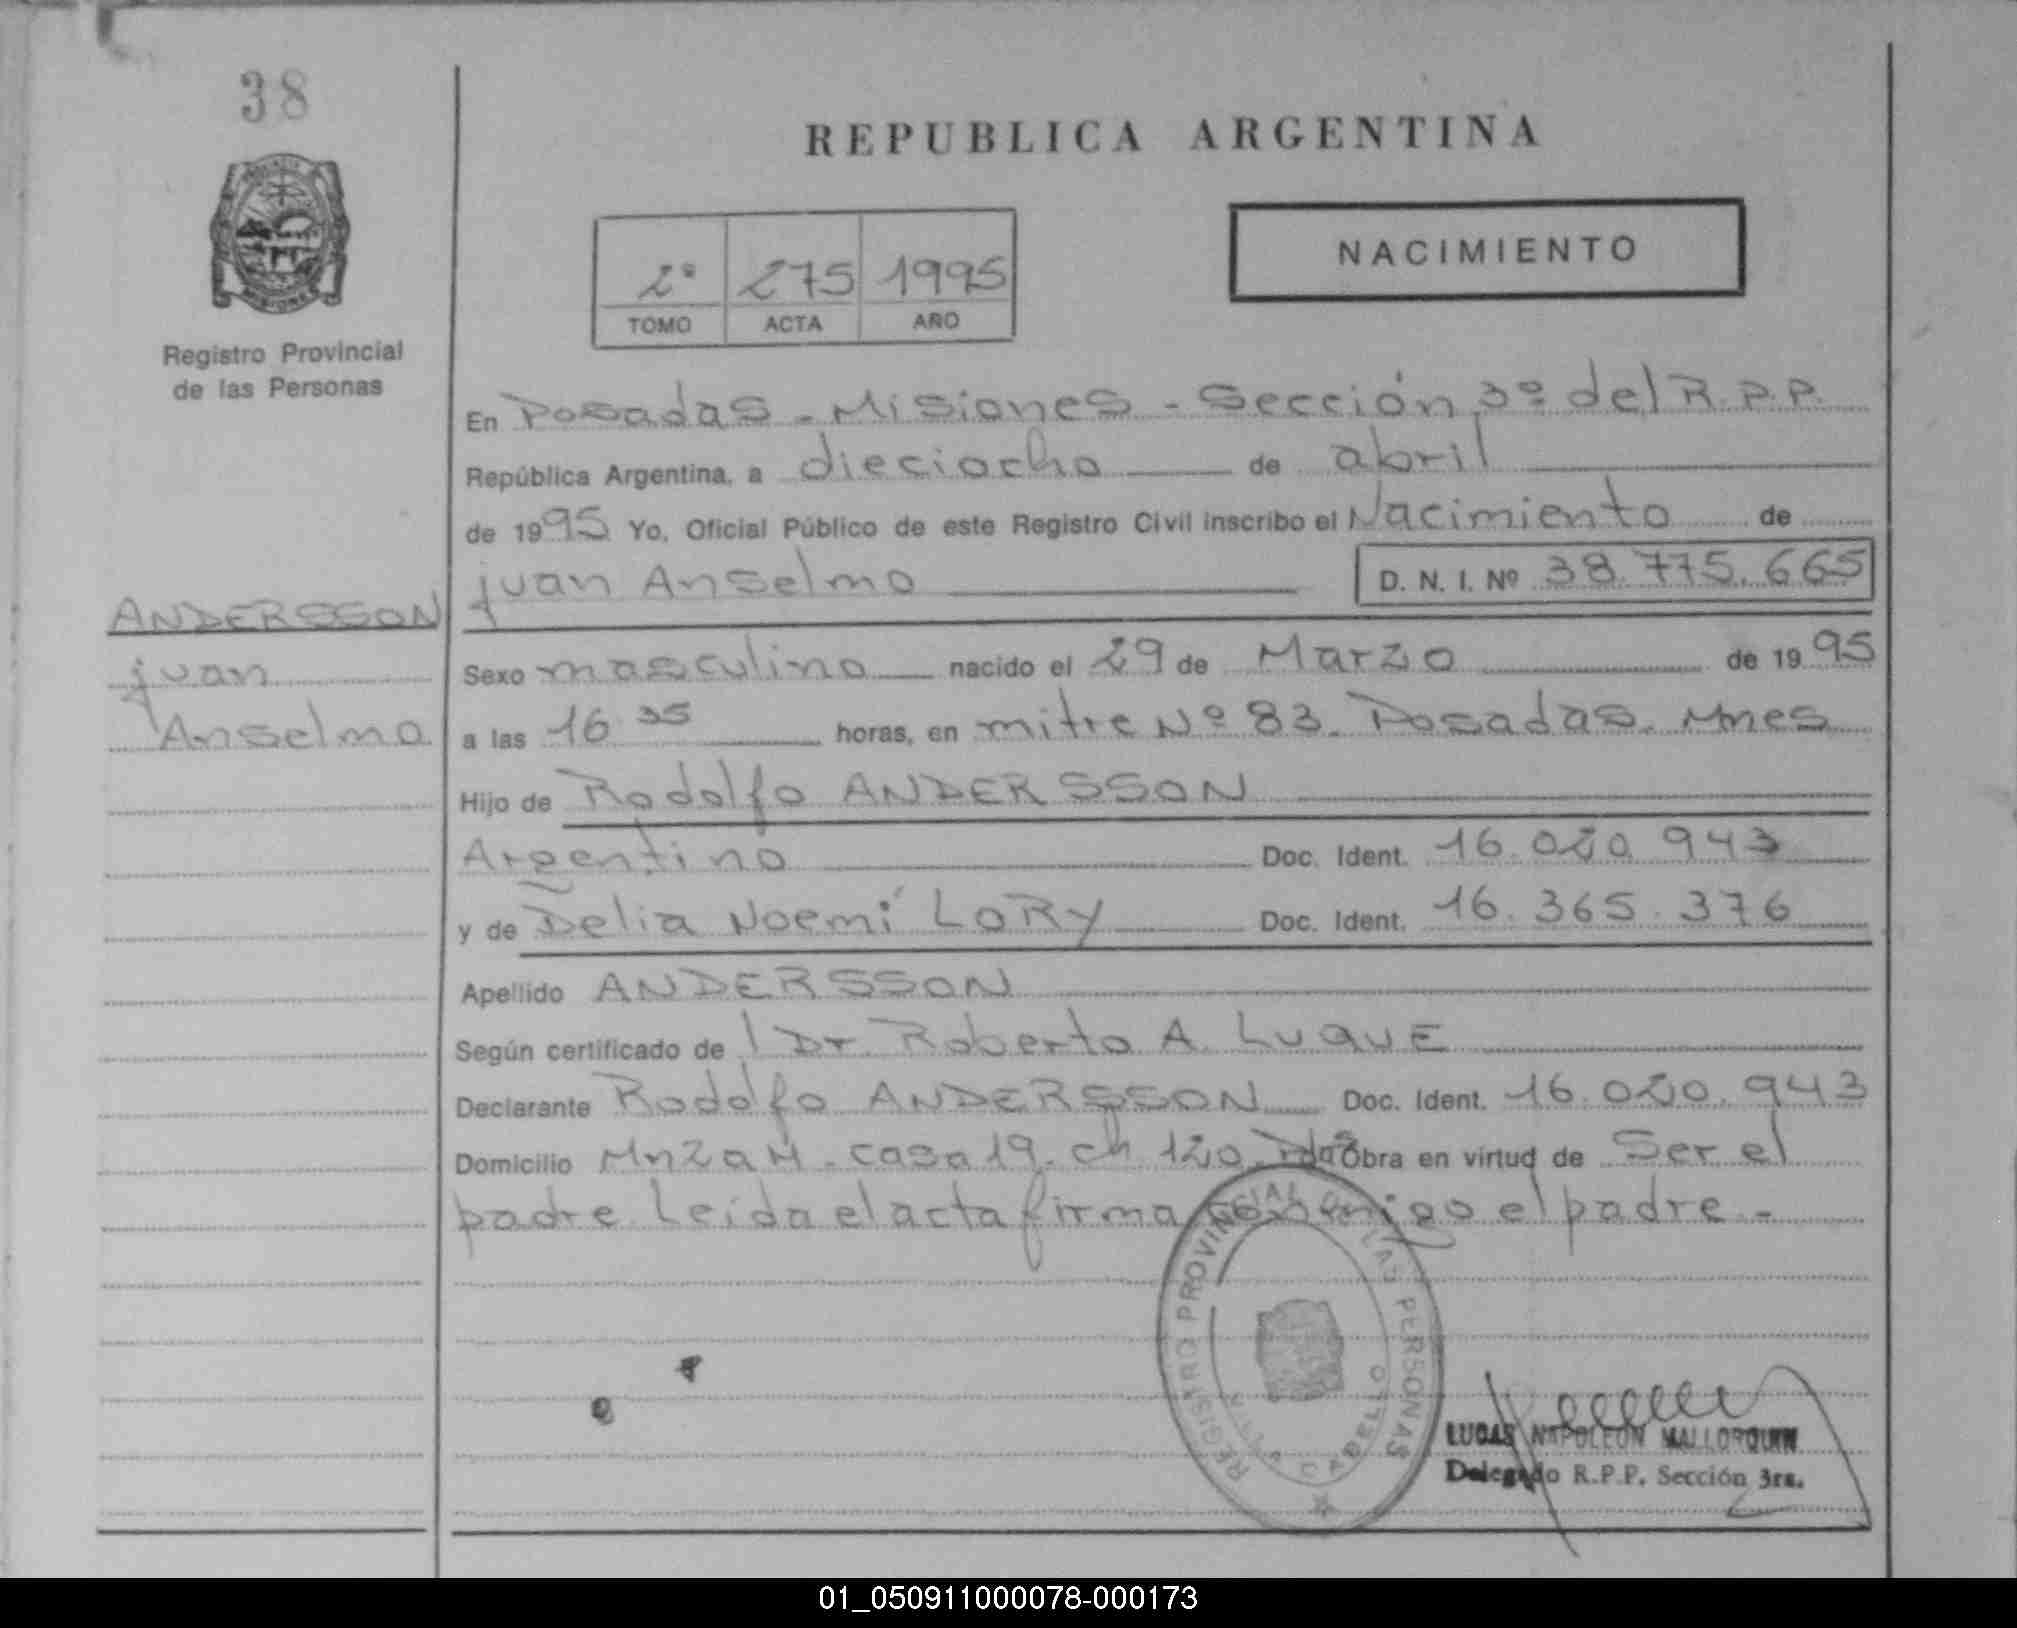 38
REPUBLICA ARGENTINA
NACIMIENTO
2º 275 1995
TOMO ACTA AÑO
Registro Provincial
de las Personas
En Posadas - Misiones - Sección 3º del R.P.P.
República Argentina, a dieciocho de abril
de 1995 Yo, Oficial Público de este Registro Civil inscribo el Nacimiento de
juan Anselmo D. N. I. Nº 38.775.665
ANDERSSON
juan
Anselmo
Sexo masculino nacido el 29 de Marzo de 1995
a las 16 35 horas, en mitre Nº 83. Posadas. Mnes
Hijo de Rodolfo ANDERSSON
Argentino Doc. Ident. 16.020.943
y de Delia Noemí LORY Doc. Ident. 16.365.376
Apellido ANDERSSON
Según certificado de l Dr. Roberto A. LUQUE
Declarante Rodolfo ANDERSSON Doc. Ident. 16.020.943
Domicilio Mnza H. casa 19. ch 120. Pdas Obra en virtud de Ser el
padre. Leida el acta firma conmigo el padre. -
REGISTRO PROVINCIAL DE LAS PERSONAS
CABELLO
LUCAS NAPOLEON MALLORQUIN
Delegado R.P.P. Sección 3ra.
01_050911000078-000173